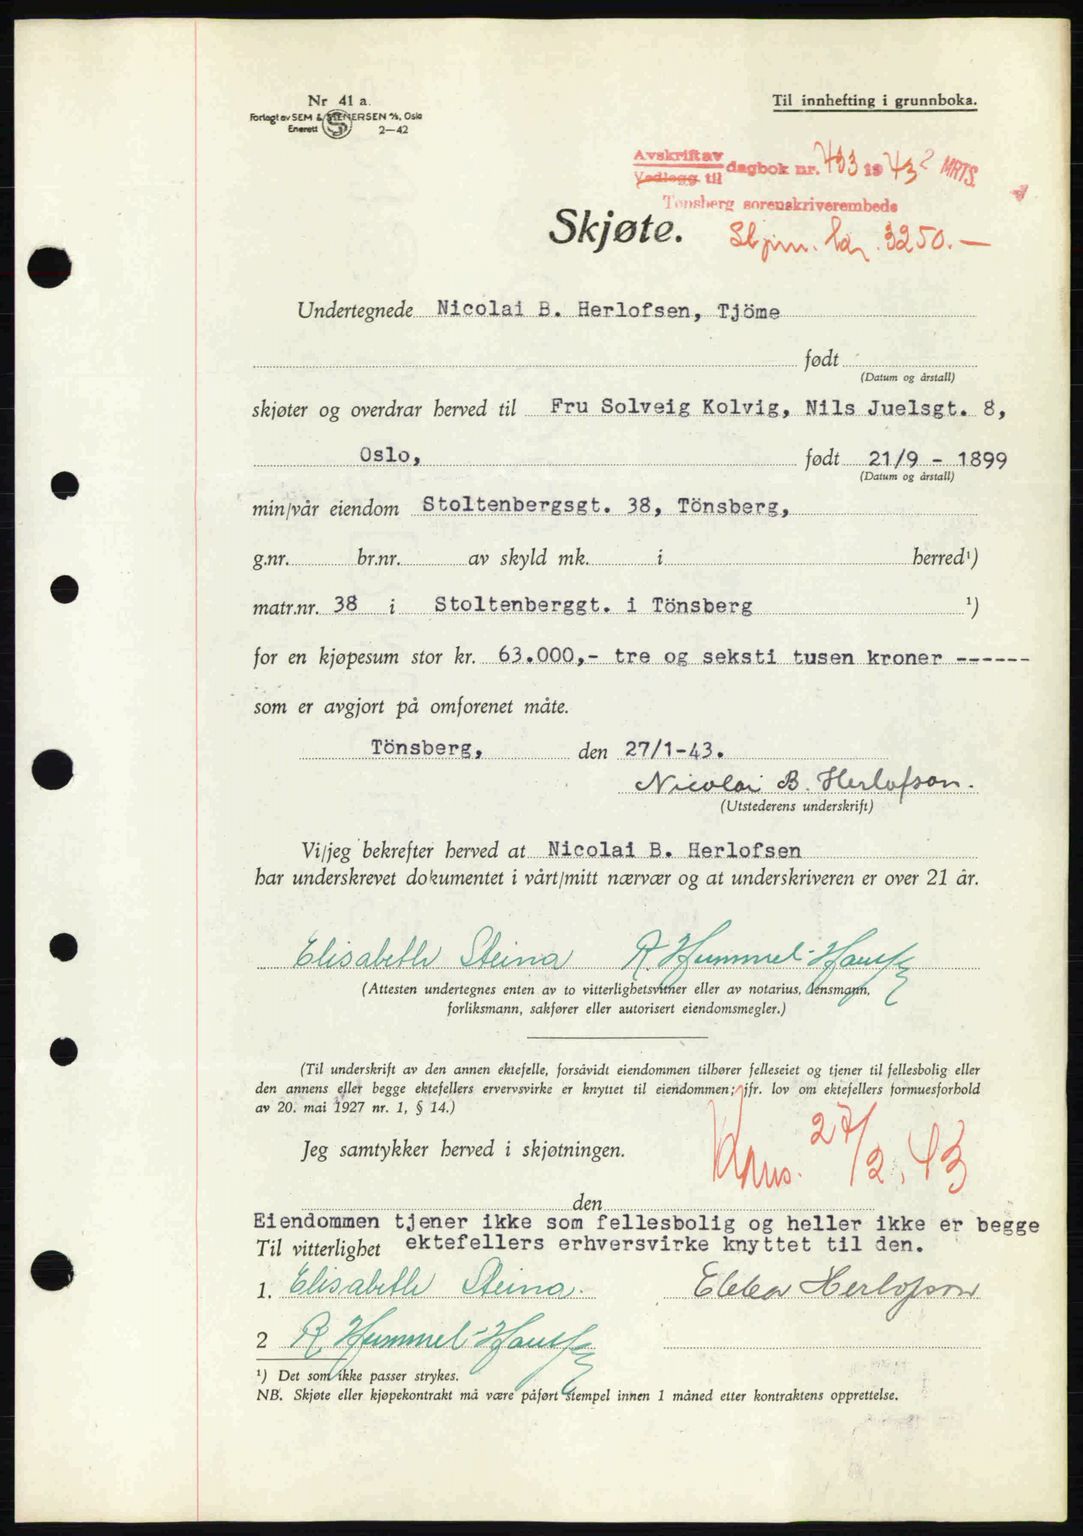 Nr 41 a.
Forlagt av SEM & STENERSEN A/S, Oslo
Enerett 2—42
Til innhefting i grunnboka.
Avskrift av
Vedlegg til dagbok nr. 433 1943 2 MRTS.
Tønsberg sorenskriverembede
Skjøte.
kr. 3250.—
Undertegnede Nicolai B. Herlofsen, Tjöme
født
(Datum og årstall)
skjøter og overdrar herved til Fru Solveig Kolvig, Nils Juelsgt. 8,
Oslo, født 21/9 - 1899
(Datum og årstall)
min/vår eiendom Stoltenbergsgt. 38, Tönsberg,
g.nr. br.nr. av skyld mk. i herred¹)
matr.nr. 38 i Stoltenberggt. i Tönsberg ¹)
for en kjøpesum stor kr. 63.000,- tre og seksti tusen kroner ------
som er avgjort på omforenet måte.
Tönsberg, den 27/1-43.
Nicolai B. Herlofson.
(Utstederens underskrift)
Vi/jeg bekrefter herved at Nicolai B. Herlofsen
har underskrevet dokumentet i vårt/mitt nærvær og at underskriveren er over 21 år.
Elisabeth Steina R. Hummel-Hansen
(Attesten undertegnes enten av to vitterlighetsvitner eller av notarius, lensmann,
forliksmann, sakfører eller autorisert eiendomsmegler.)
(Til underskrift av den annen ektefelle, forsåvidt eiendommen tilhører felleseiet og tjener til fellesbolig eller
den annens eller begge ektefellers ervervsvirke er knyttet til eiendommen; jfr. lov om ektefellers formuesforhold
av 20. mai 1927 nr. 1, § 14.)
27/2.43
Jeg samtykker herved i skjøtningen.
den
Eiendommen tjener ikke som fellesbolig og heller ikke er begge
Til vitterlighet ektefellers erhversvirke knyttet til den.
1. Elisabeth Steina. Ebba Herlofson
2 R. Hummel-Hansen
¹) Det som ikke passer strykes.
NB. Skjøte eller kjøpekontrakt må være påført stempel innen 1 måned etter kontraktens opprettelse.